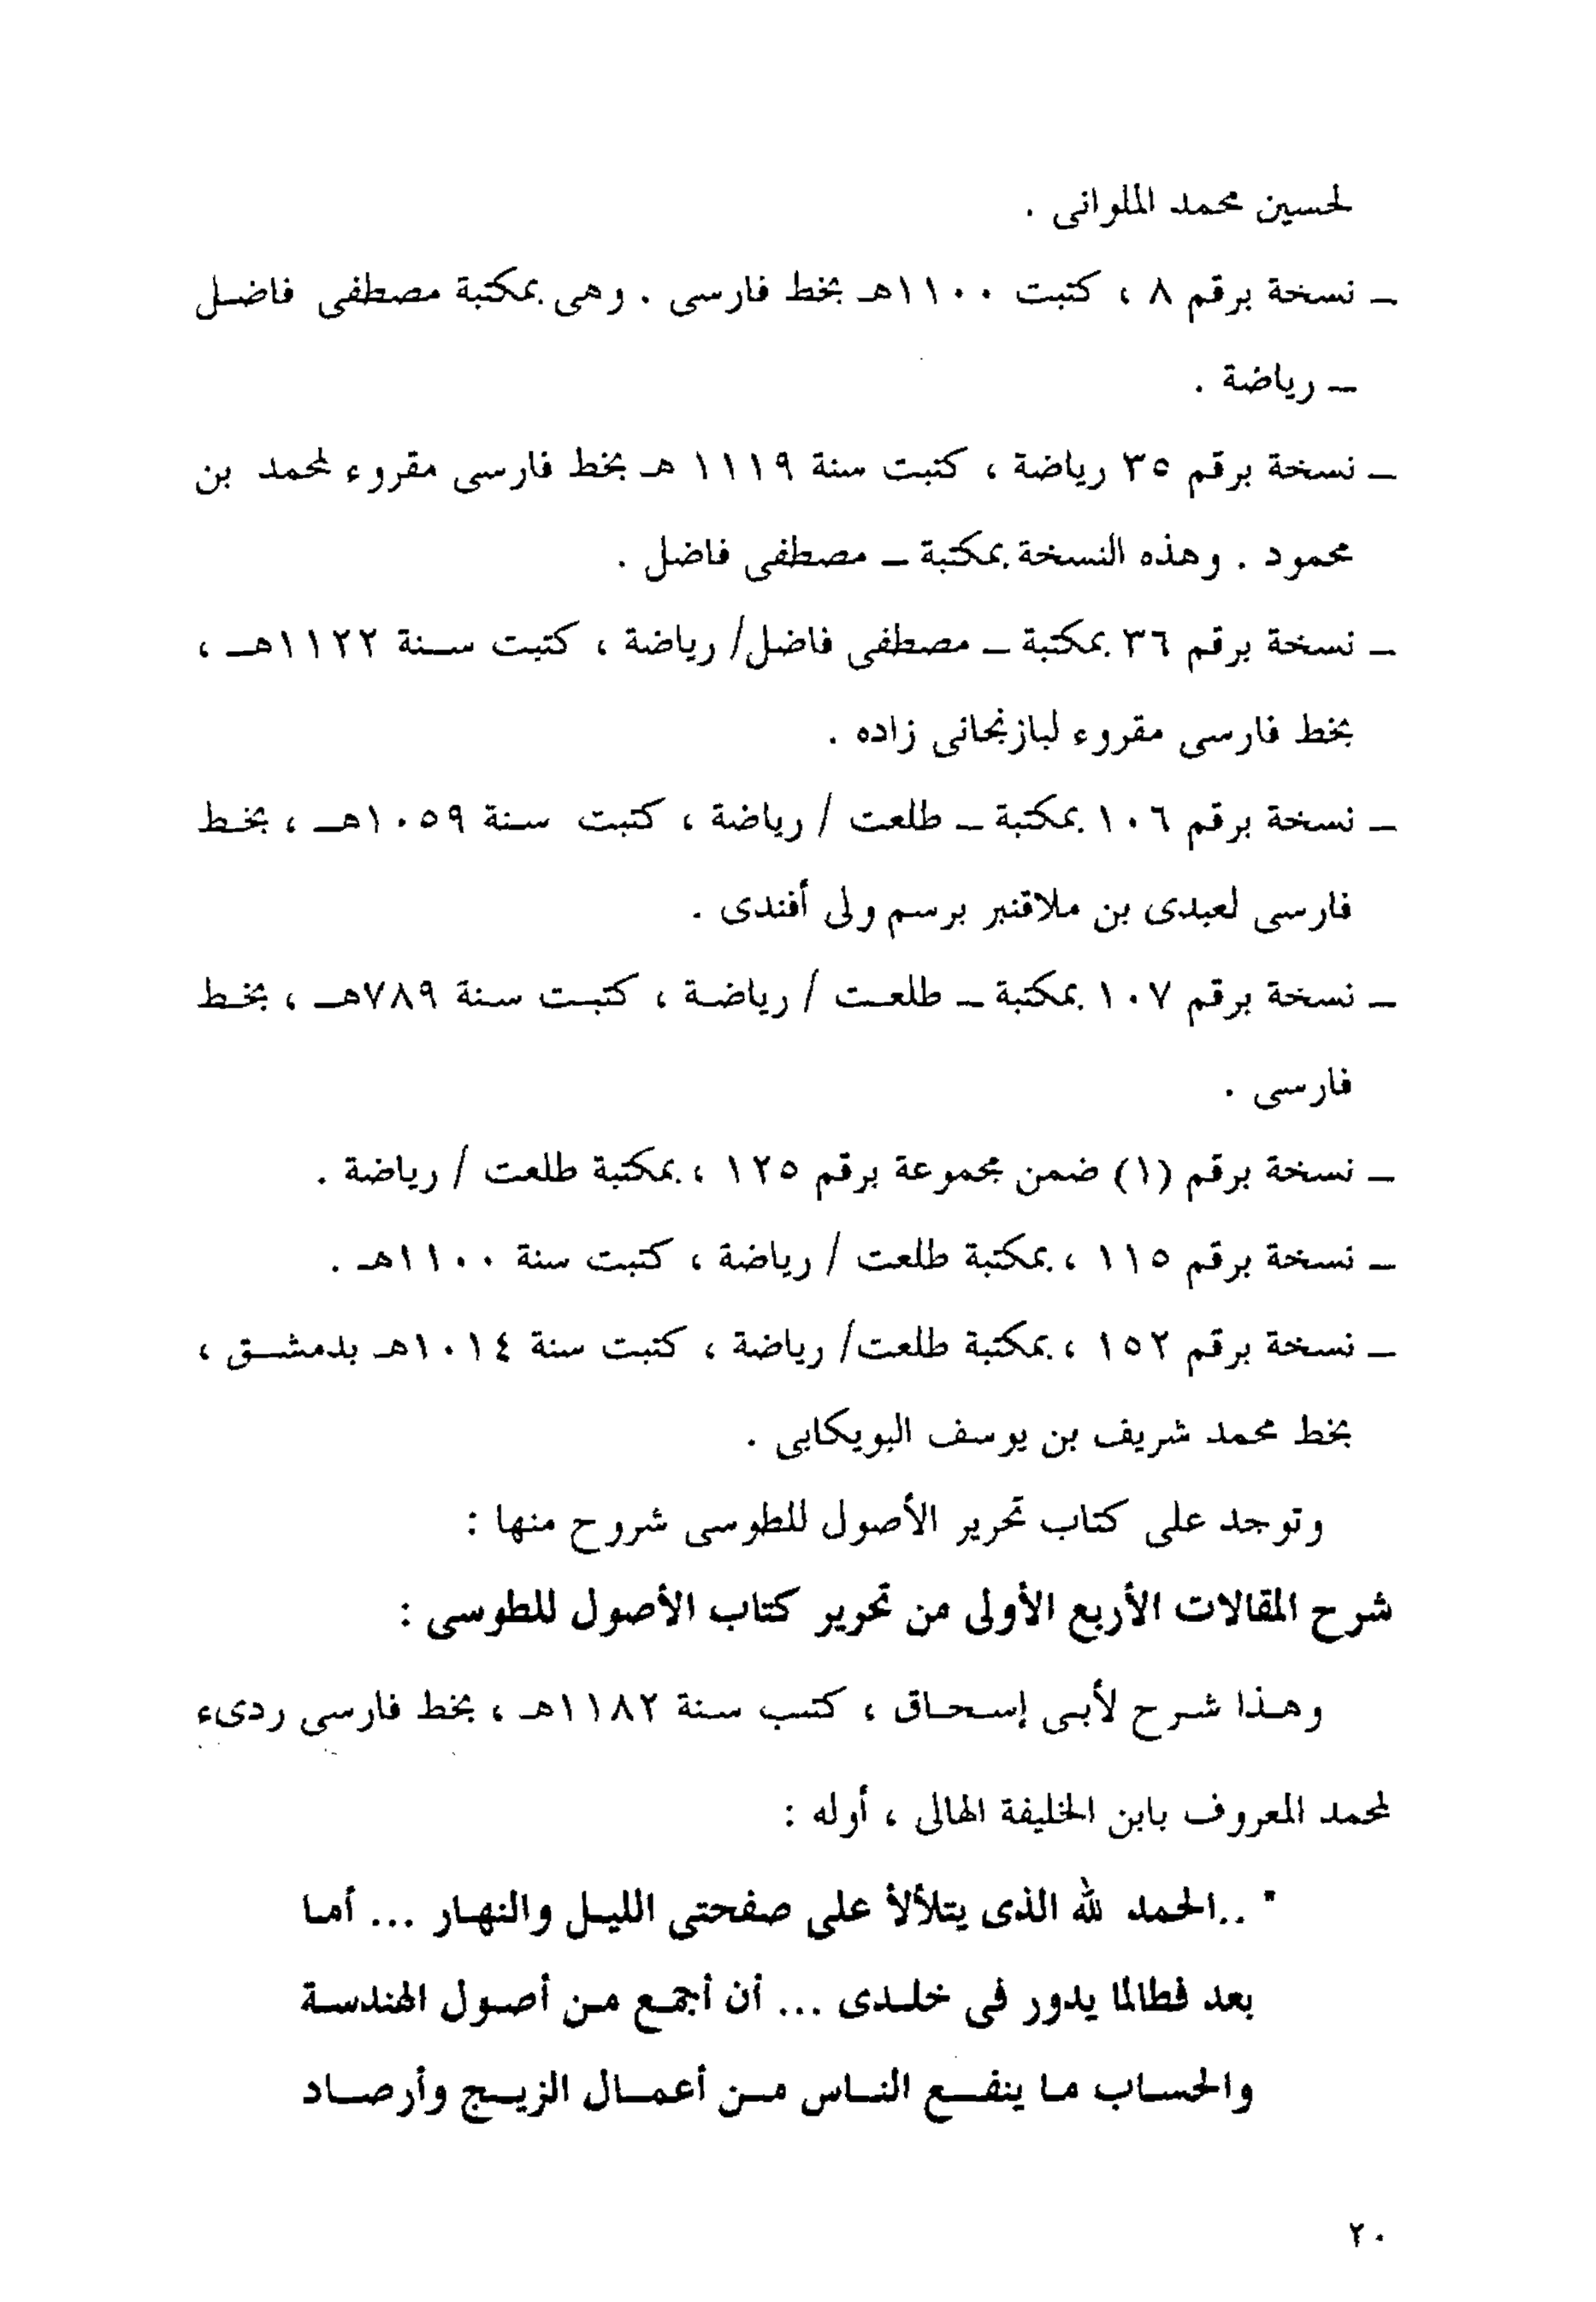 لحسين محمد الملوانى .
– نسخة برقم ٨ ، كتبت ١١٠٠هـ بخط فارسى . وهى بمكتبة مصطفى فاضل
– رياضة .
– نسخة برقم ٣٥ رياضة ، كتبت سنة ١١١٩ هـ بخط فارسى مقروء لمحمد بن
محمود . وهذه النسخة بمكتبة – مصطفى فاضل .
– نسخة برقم ٣٦ بمكتبة – مصطفى فاضل/ رياضة ، كتبت سنة ١١٢٢هـ ،
بخط فارسى مقروء لبازنجانى زاده .
– نسخة برقم ١٠٦ بمكتبة – طلعت / رياضة ، كتبت سنة ١٠٥٩هـ ، بخط
فارسى لعبدى بن ملاقنبر برسم ولى أفندى .
– نسخة برقم ١٠٧ بمكتبة – طلعت / رياضة ، كتبت سنة ٧٨٩هـ ، بخط
فارسى .
– نسخة برقم (١) ضمن مجموعة برقم ١٢٥ ، بمكتبة طلعت / رياضة .
– نسخة برقم ١١٥ ، بمكتبة طلعت / رياضة ، كتبت سنة ١١٠٠هـ .
– نسخة برقم ١٥٢ ، بمكتبة طلعت/ رياضة ، كتبت سنة ١٠١٤هـ بدمشق ،
بخط محمد شريف بن يوسف البويكابى .
وتوجد على كتاب تحرير الأصول للطوسى شروح منها :
شرح المقالات الأربع الأولى من تحرير كتاب الأصول للطوسى :
وهذا شرح لأبى إسحاق ، كتب سنة ١١٨٢هـ ، بخط فارسى ردىء
لمحمد المعروف بابن الخليفة الهالى ، أوله :
" ..الحمد لله الذى يتلألأ على صفحتى الليل والنهار ... أما
بعد فطالما يدور فى خلدى ... أن أجمع من أصول الهندسة
والحساب ما ينفع الناس من أعمال الزيج وأرصاد
٢٠